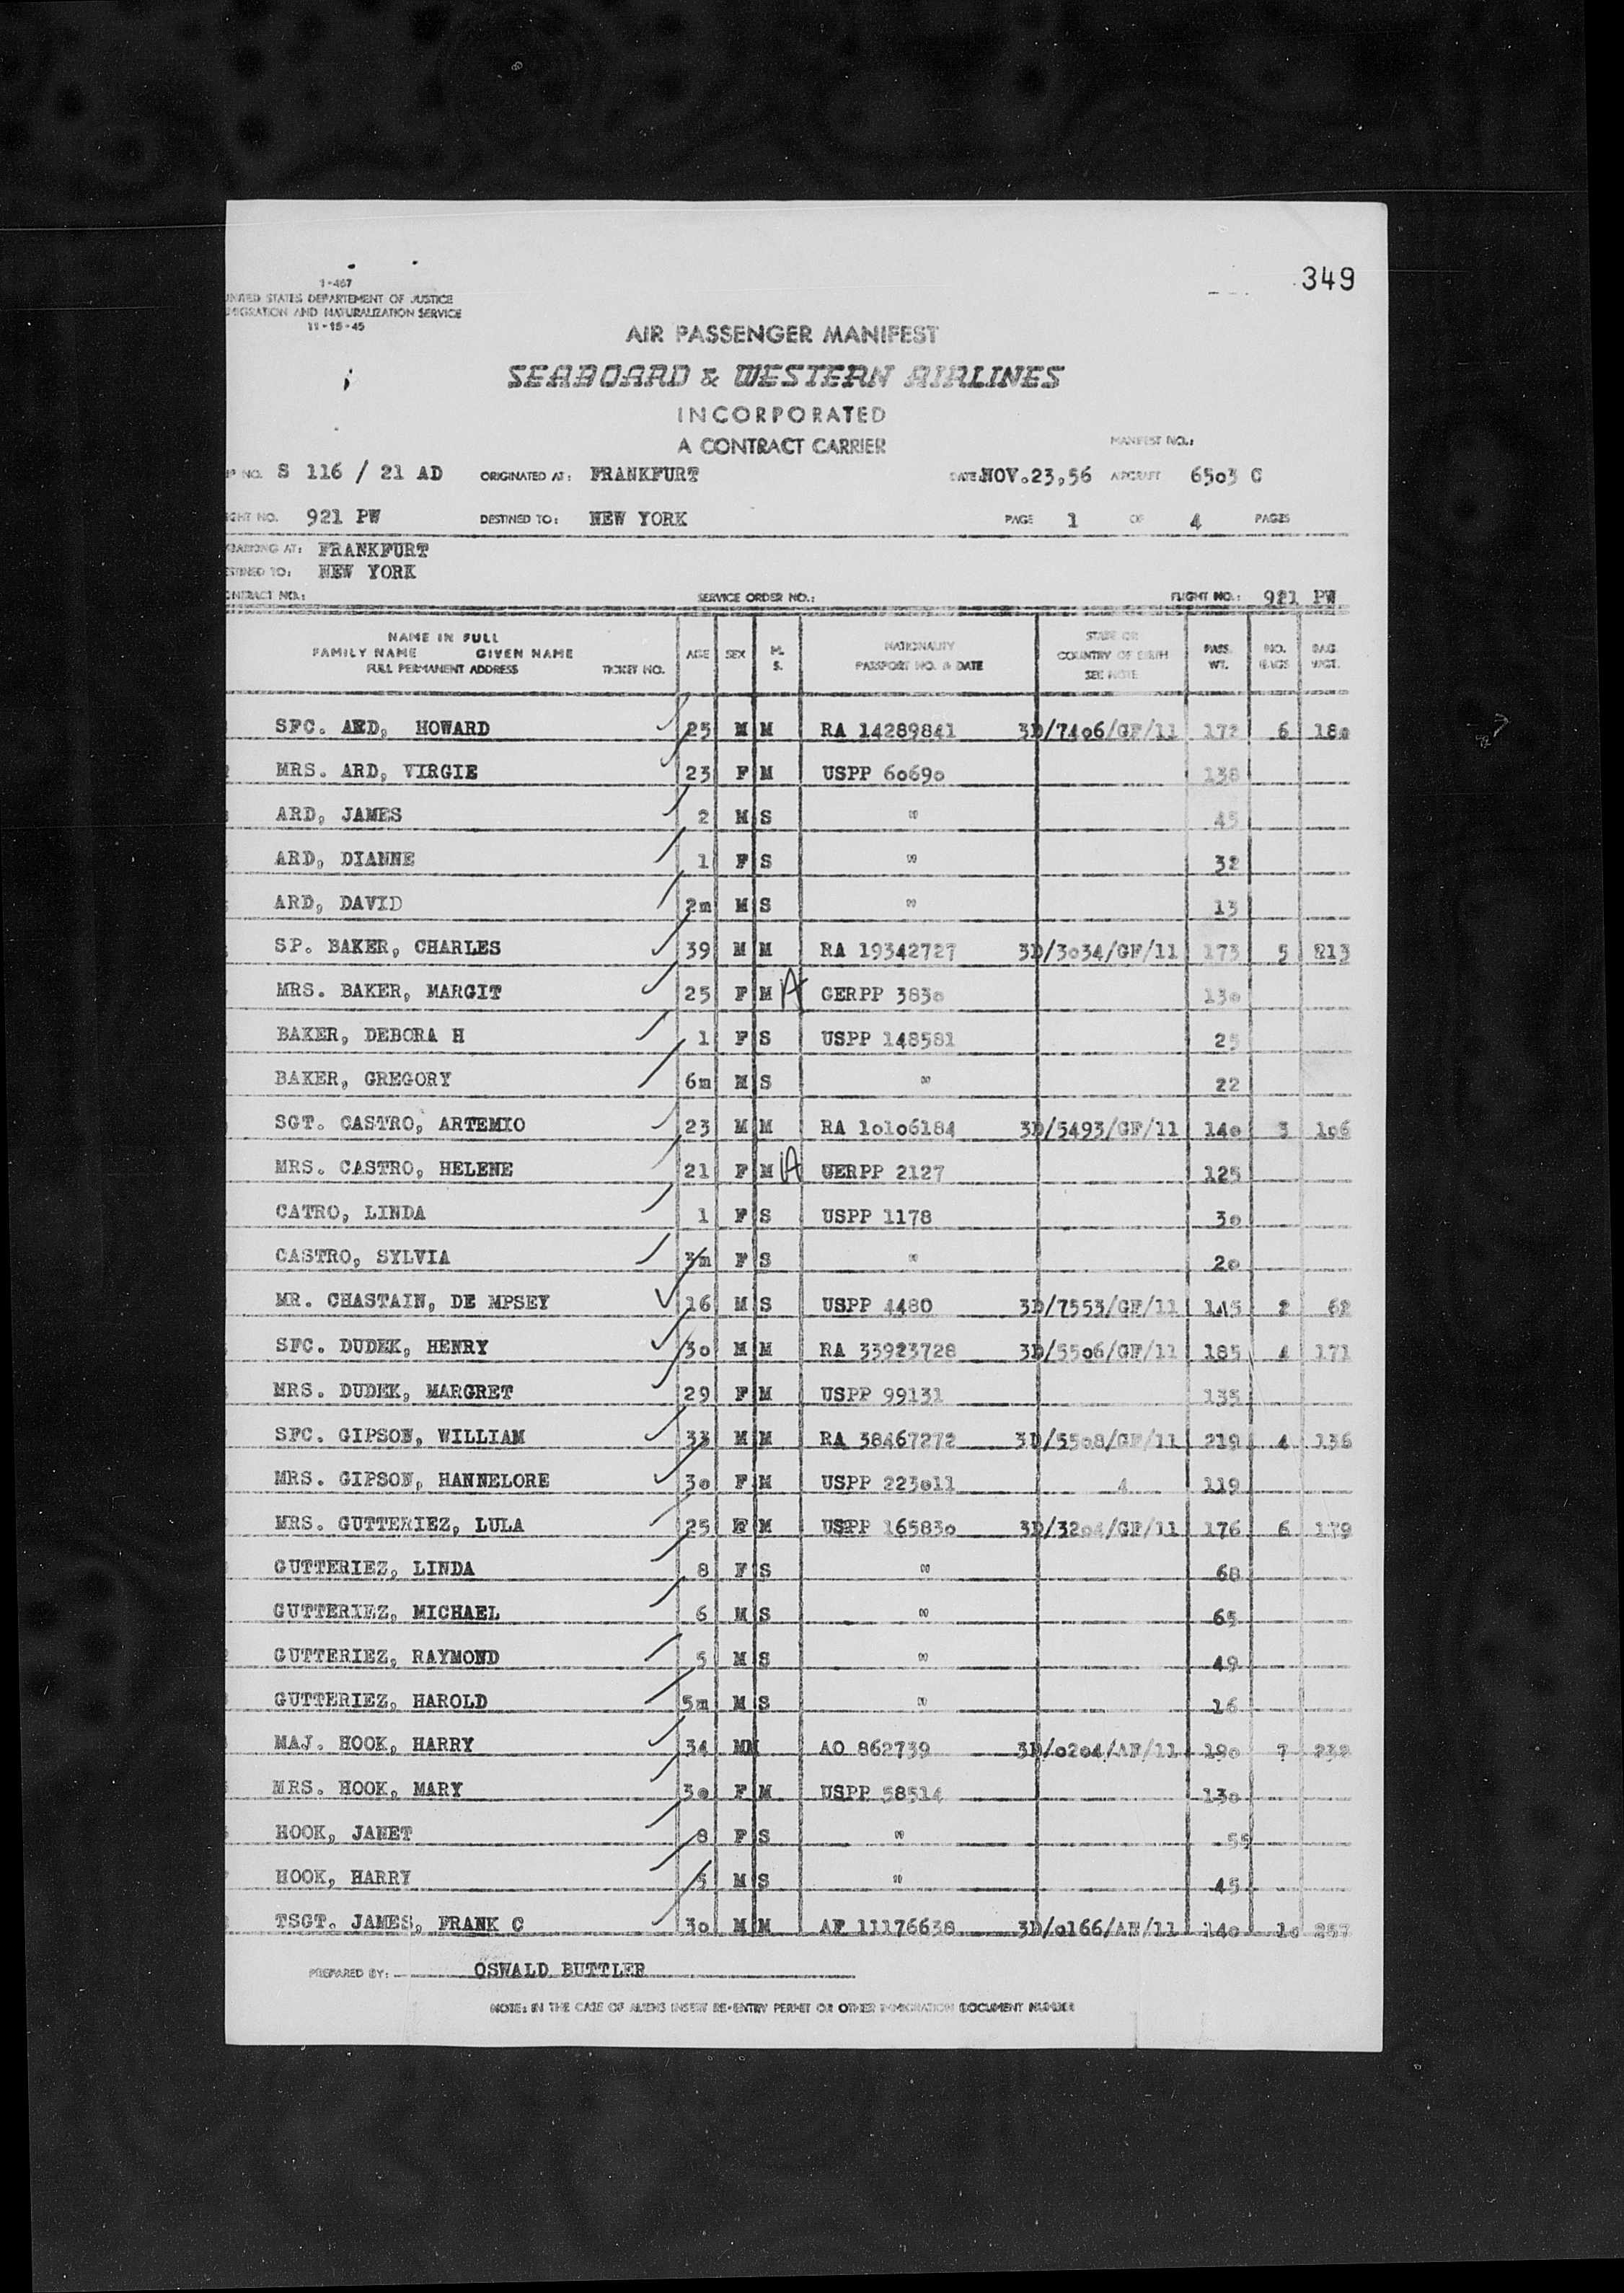 349
1-467
UNITED STATES DEPARTEMENT OF JUSTICE
MIGRATION AND NATURALIZATION SERVICE
11-15-45
AIR PASSENGER MANIFEST
SEABOARD & WESTERN AIRLINES
INCORPORATED
A CONTRACT CARRIER
MANIFEST NO.:
P NO. S 116 / 21 AD ORIGINATED AT: FRANKFURT DATE: NOV.23,56 AIRCRAFT 6503 C
GHT NO. 921 PW DESTINED TO: NEW YORK PAGE 1 OF 4 PAGES
BARKING AT: FRANKFURT
STINED TO: NEW YORK
ONTRACT NO.: SERVICE ORDER NO.: FLIGHT NO.: 921 PW
NAME IN FULL
FAMILY NAME GIVEN NAME
FULL PERMANENT ADDRESS TICKET NO. AGE SEX M. S. NATIONALITY PASSPORT NO. & DATE STATE OR COUNTRY OF BIRTH SEE NOTE PASS. WT. NO. BAGS BAG. WGT.
SFC. ARD, HOWARD 25 M M RA 14289841 3D/7406/GF/11 172 6 180
MRS. ARD, VIRGIE 23 F M USPP 60690 138
ARD, JAMES 2 M S " 45
ARD, DIANNE 1 F S " 32
ARD, DAVID 2m M S " 13
SP. BAKER, CHARLES 39 M M RA 19342727 3D/3034/GF/11 173 5 213
MRS. BAKER, MARGIT 25 F M A GERPP 3830 130
BAKER, DEBORA H 1 F S USPP 148581 25
BAKER, GREGORY 6m M S " 22
SGT. CASTRO, ARTEMIO 23 M M RA 10106184 3D/5493/GF/11 140 3 106
MRS. CASTRO, HELENE 21 F M A GERPP 2127 125
CATRO, LINDA 1 F S USPP 1178 30
CASTRO, SYLVIA 3m F S " 20
MR. CHASTAIN, DE MPSEY 16 M S USPP 4480 3D/7553/GF/11 145 2 62
SFC. DUDEK, HENRY 30 M M RA 33923728 3D/5506/GF/11 185 4 171
MRS. DUDEK, MARGRET 29 F M USPP 99131 135
SFC. GIPSON, WILLIAM 33 M M RA 38467272 3D/5508/GF/11 219 4 136
MRS. GIPSON, HANNELORE 30 F M USPP 223011 4 119
MRS. GUTTERIEZ, LULA 25 F M USPP 165830 3D/3204/GF/11 176 6 179
GUTTERIEZ, LINDA 8 F S " 68
GUTTERIEZ, MICHAEL 6 M S " 65
GUTTERIEZ, RAYMOND 5 M S " 49
GUTTERIEZ, HAROLD 5m M S " 16
MAJ. HOOK, HARRY 34 MM AO 862739 3D/0204/AF/11 190 7 232
MRS. HOOK, MARY 30 F M USPP 58514 130
HOOK, JANET 8 F S " 55
HOOK, HARRY 5 M S " 45
TSGT. JAMES, FRANK C 30 M M AF 11176638 3D/0166/AF/11 140 10 257
PREPARED BY: OSWALD BUTTLER
NOTE: IN THE CASE OF ALIENS INSERT RE-ENTRY PERMIT OR OTHER IMMIGRATION DOCUMENT NUMBER